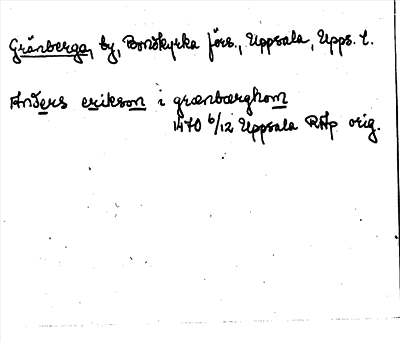 Gränberga, by, Bondkyrka förs., Uppsala, Upps. l.
Anders erikson i grænbærghom
1470 6/12 Uppsala RAp orig.